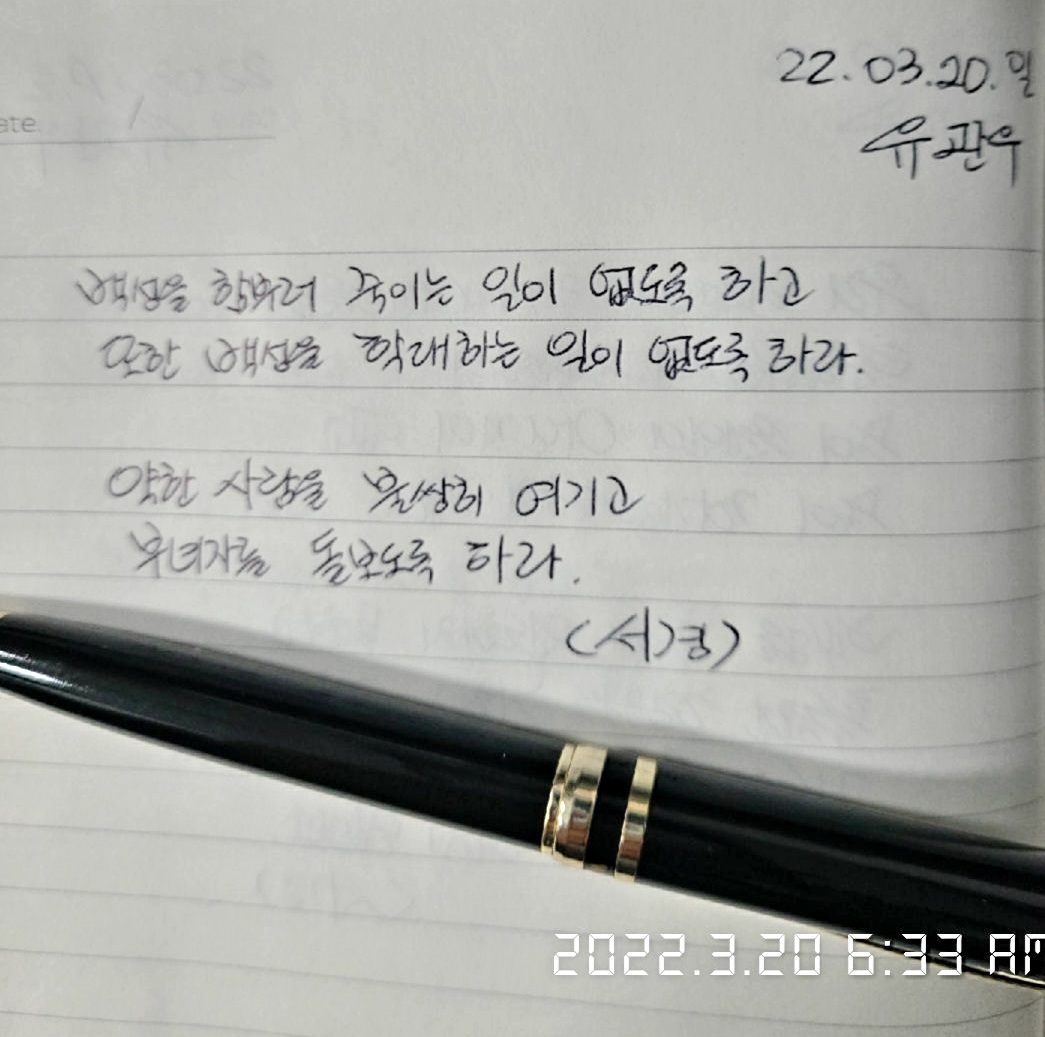 22.03.20.일
ate
유관우
백성을 함부러 죽이는 일이 없도록 하고
또한 백성을 학대하는 일이 없도록 하라.
약한 사람을 불쌍히 여기고
부녀자를 돌보도록 하라.
(서경)
2022.3.20 6:33 AM